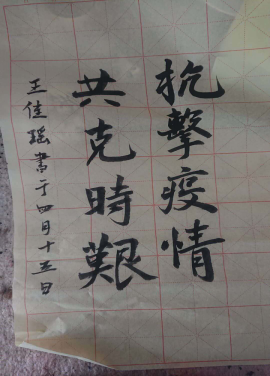 抗擊疫情
共克時艱
王佳瑶書于四月十五日